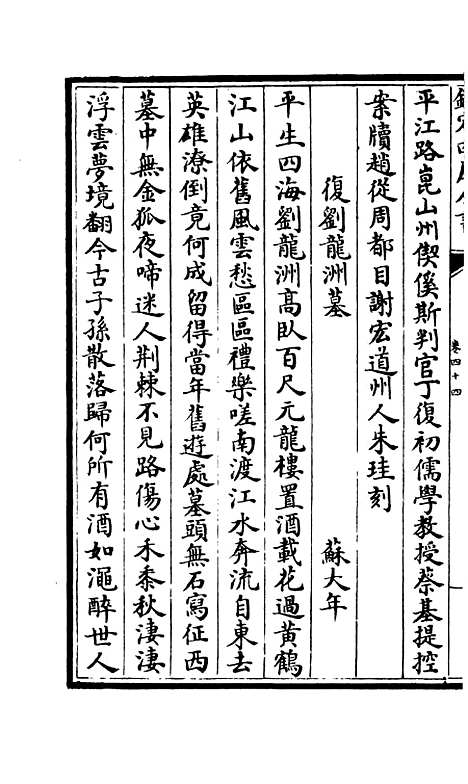 欽定四庫全書
卷四十四
平江路崑山州偰傒斯判官丁復初儒學教授蔡基提控
案牘趙從周都目謝宏道州人朱珪刻
復劉龍洲墓　蘇大年
平生四海劉龍洲高臥百尺元龍樓置酒載花過黄鶴
江山依舊風雲愁區區禮樂嗟南渡江水奔流自東去
英雄潦倒竟何成留得當年舊遊處墓頭無石寫征西
墓中無金狐夜啼迷人荆棘不見路傷心禾黍秋淒淒
浮雲夢境翻今古子孫散落歸何所有酒如澠醉世人